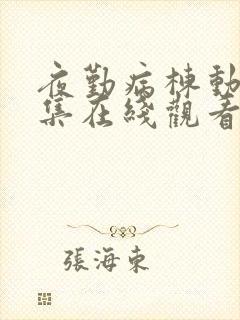 夜勤病棟動
集在綫觀看
張海東